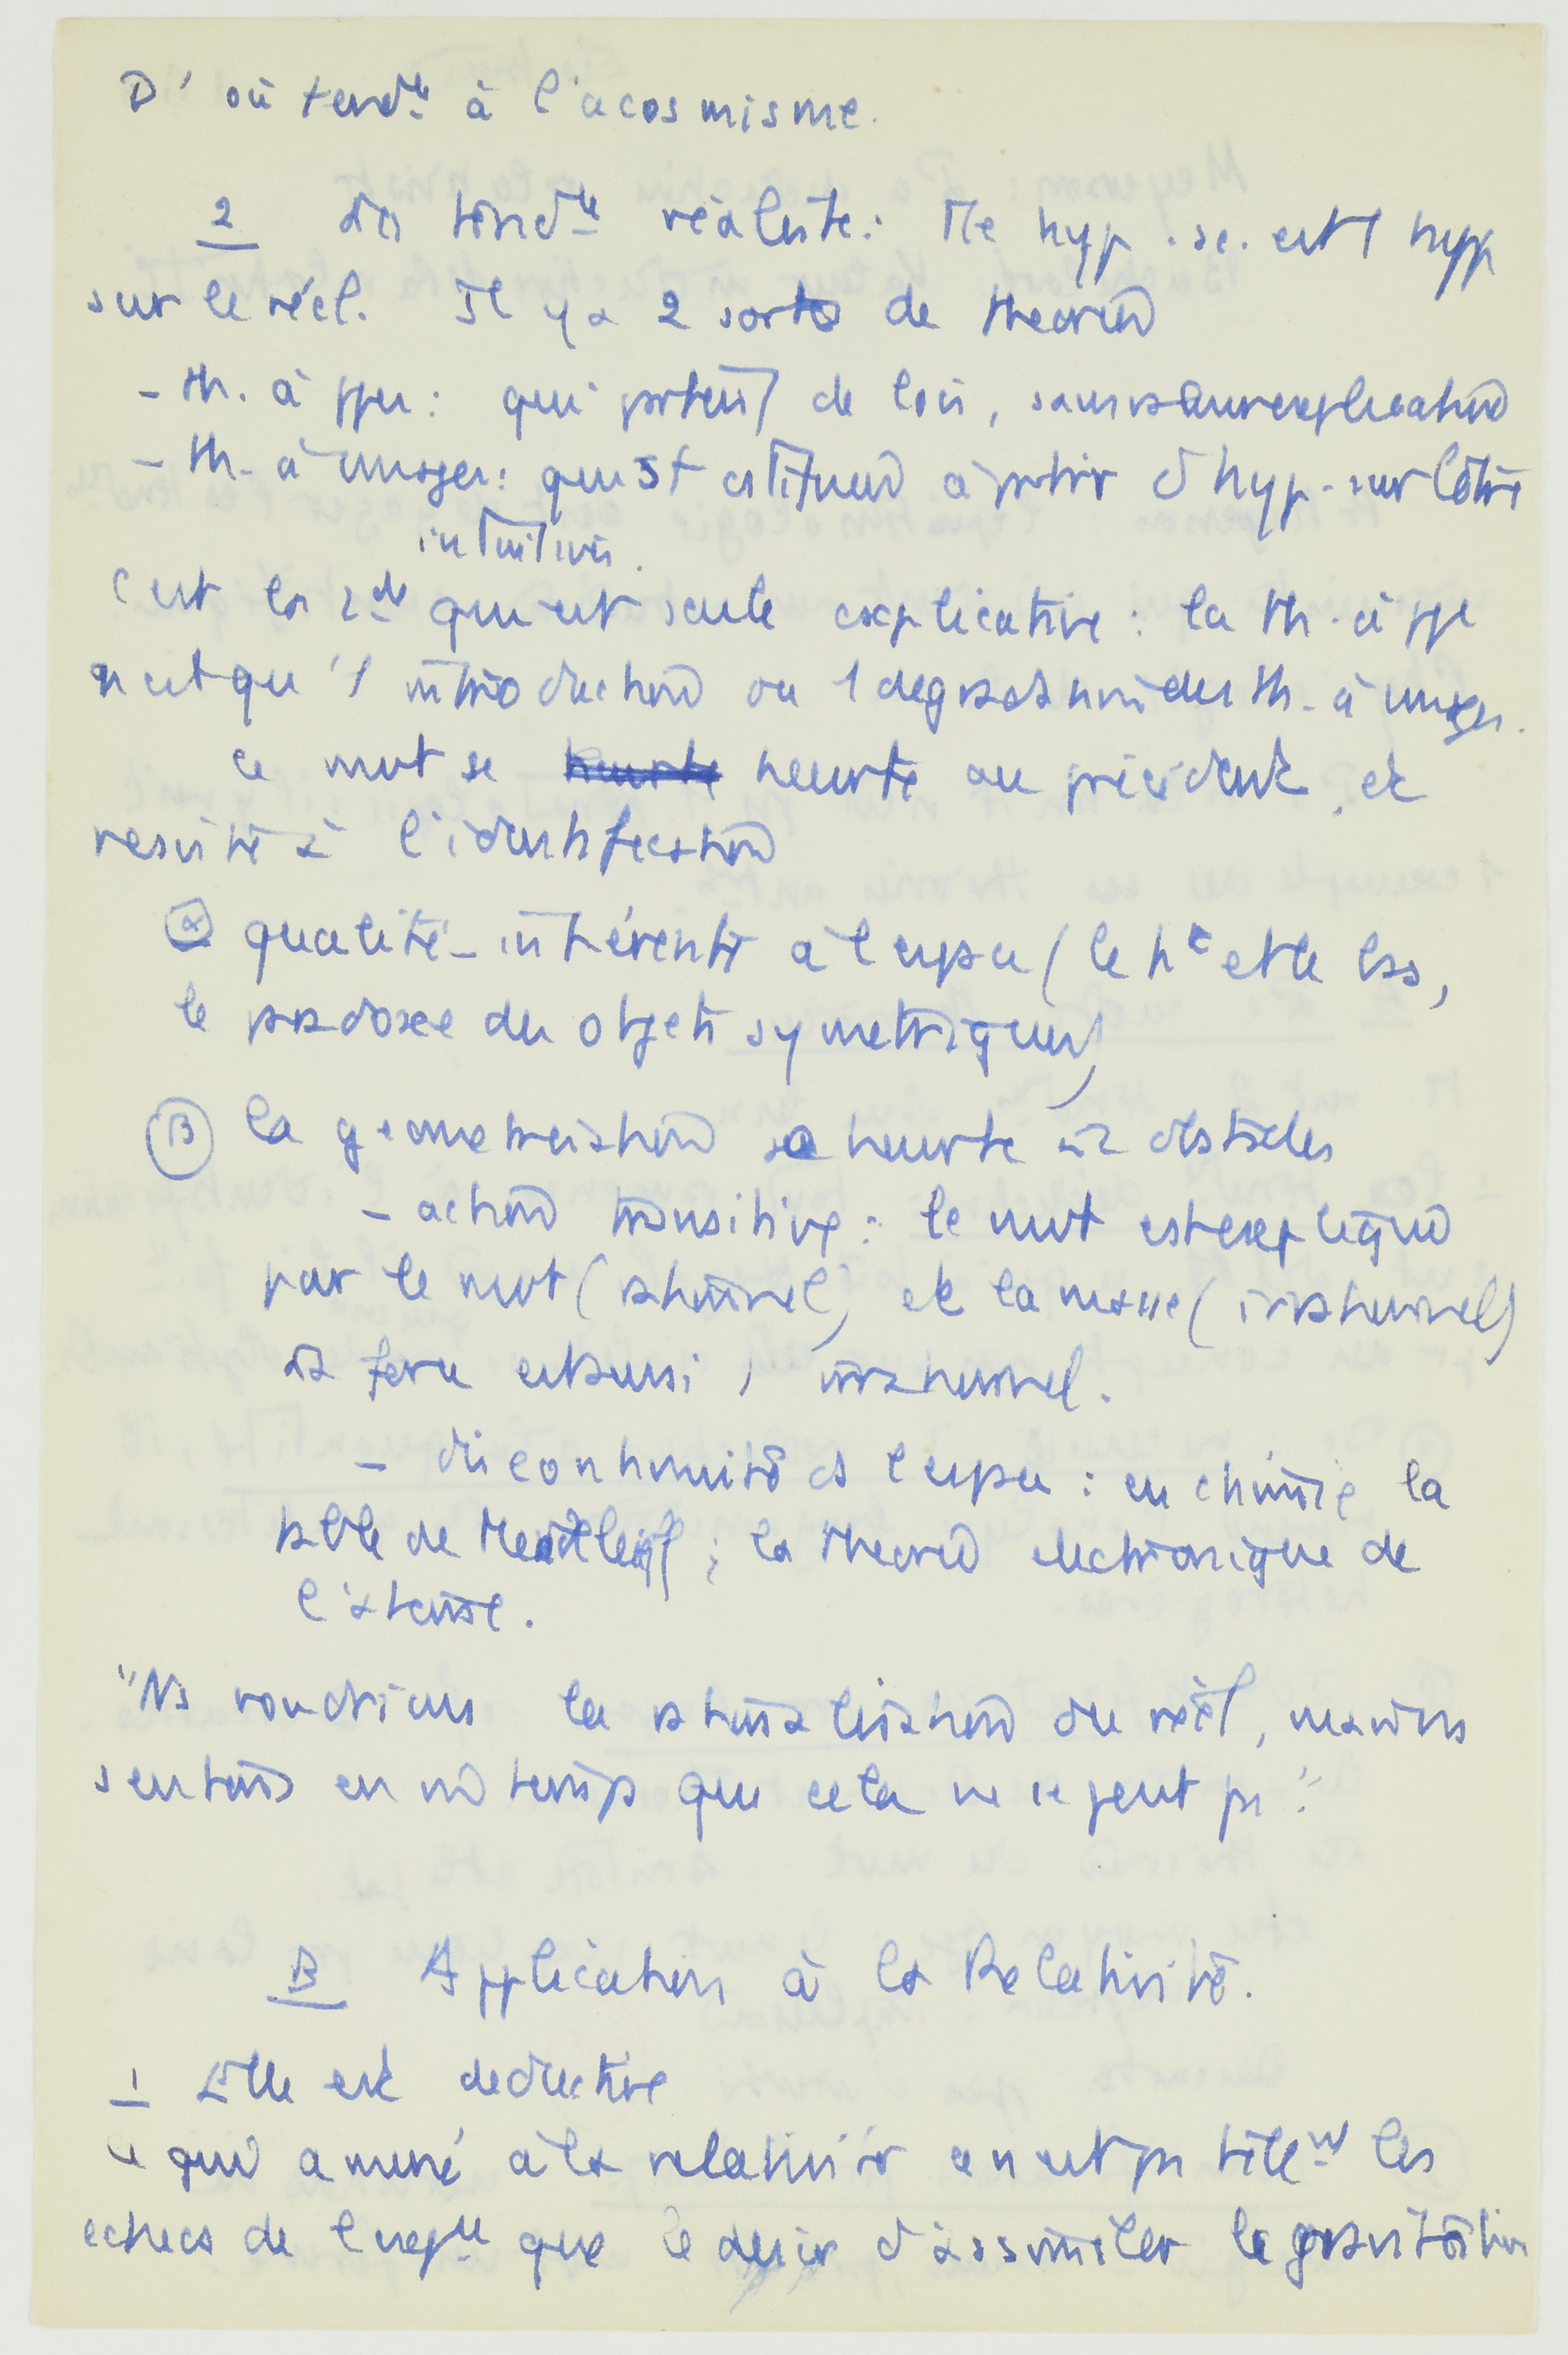 D'où tendce à l'acosmisme.
2 La tendce réaliste : Tte hyp. sc. est 1 hyp
sur le réel. Il y a 2 sortes de théories
- th. à ppes : qui partent de lois, sans explication
- th. à images : qui st constituées à partir d'hyp. sur
intuitives.
C'est la 2de qui est seule explicative : la th. à ppe
n'est qu'1 introduction ou 1 des th. à images.
Ce mvt se heurte au précédent, et
résiste à l'identification
α qualité inhérente à l'espace (le ht et le bas,
le paradoxe des objets symétriques)
β la géométrisation se heurte à 2 obstacles
- action transitive : le mvt est expliqué
par le mvt (rationnel) et la masse (irrationnel)
la force est aussi irrationnel.
- discontinuité ds l'espace : en chimie la
table de Mendeleieff ; la théorie électronique de
l'atome.
"Ns voudrions la rationalisation du réel, mais ns
sentons en m temps que cela ne se peut pas".
B Application à la Relativité.
1 Elle est déductive
Ce qui a mené à la relativité ce n'est pas tellemt les
échecs de l'expce que le désir d'assimiler la gravitation